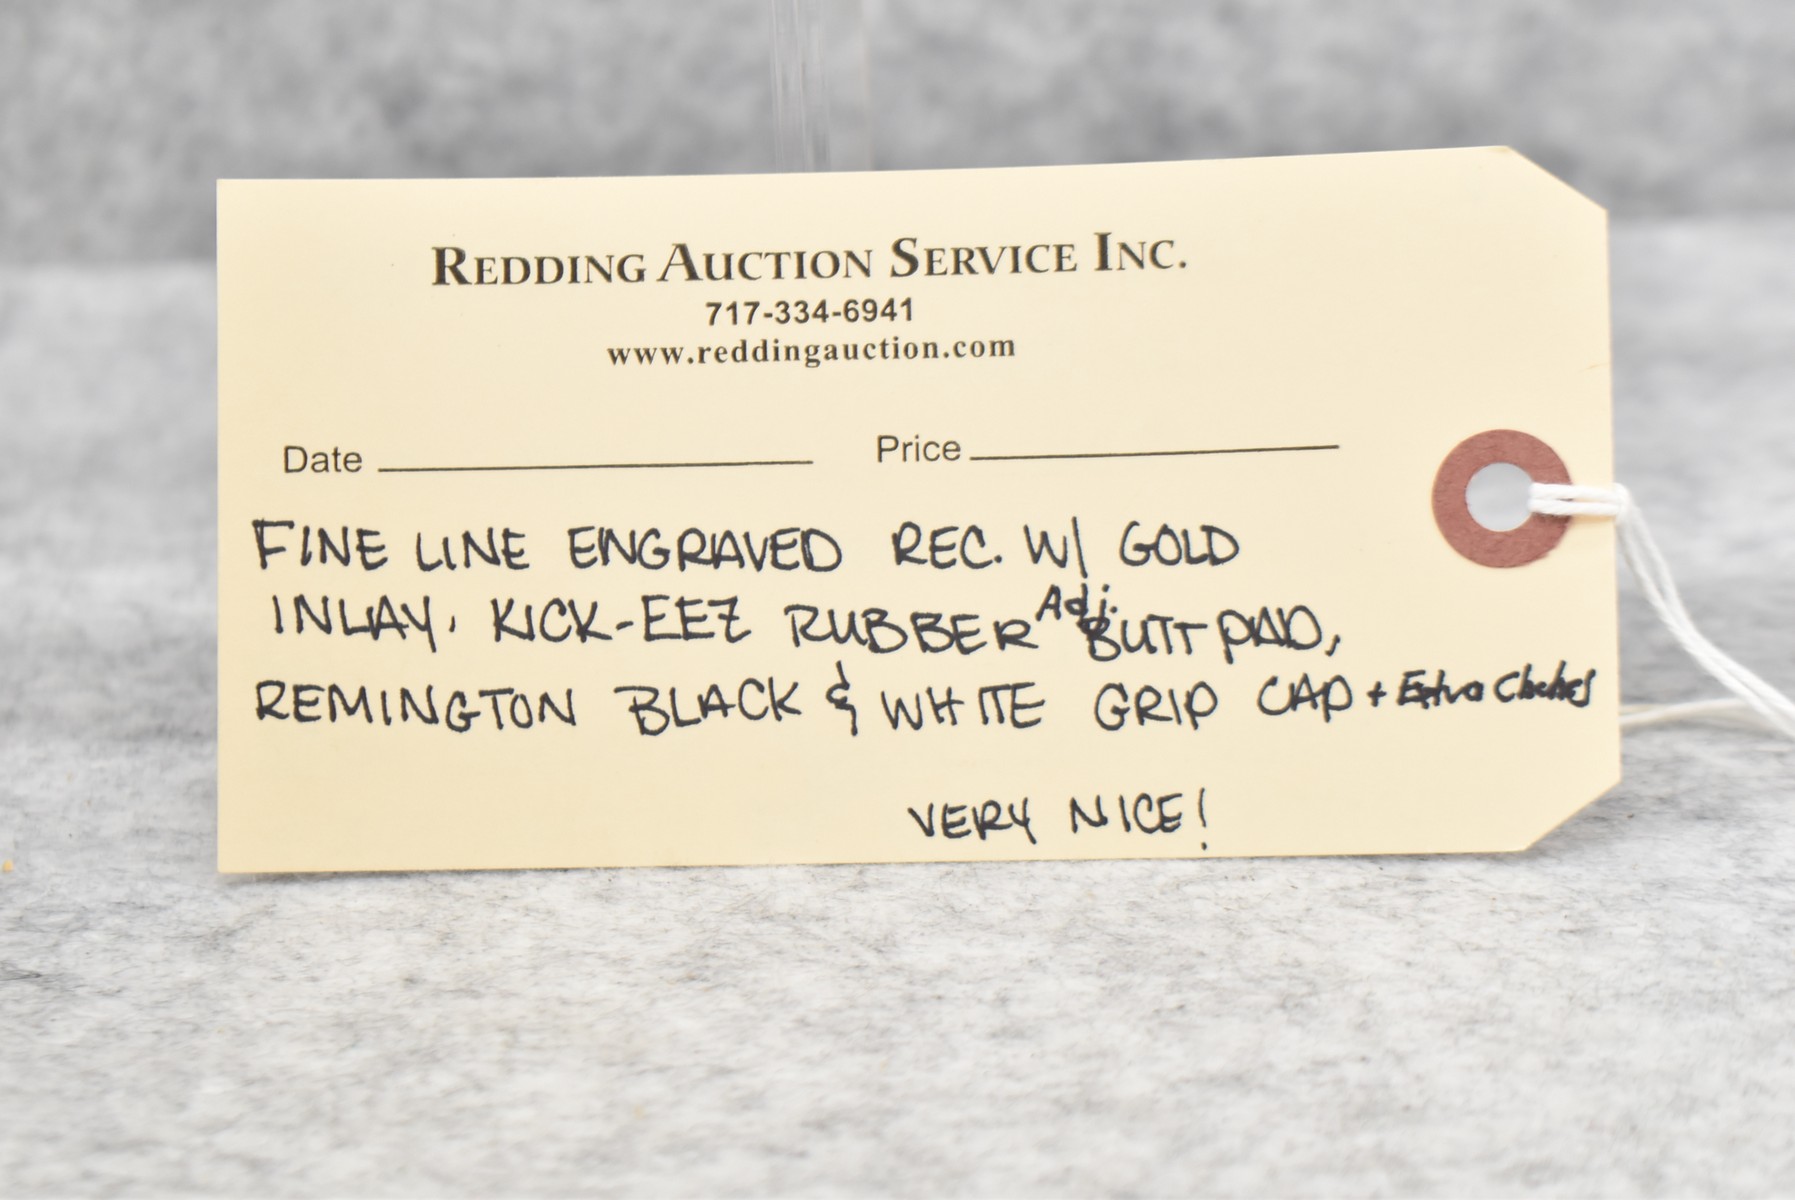 REDDING AUCTION SERVICE INC.
717-334-6941
www.reddingauction.com
Date Price
FINE LINE ENGRAVED REC. W/ GOLD
INLAY, KICK-EEZ RUBBER Adj. BUTT PAD,
REMINGTON BLACK & WHITE GRIP CAP + Extra Chokes
VERY NICE!